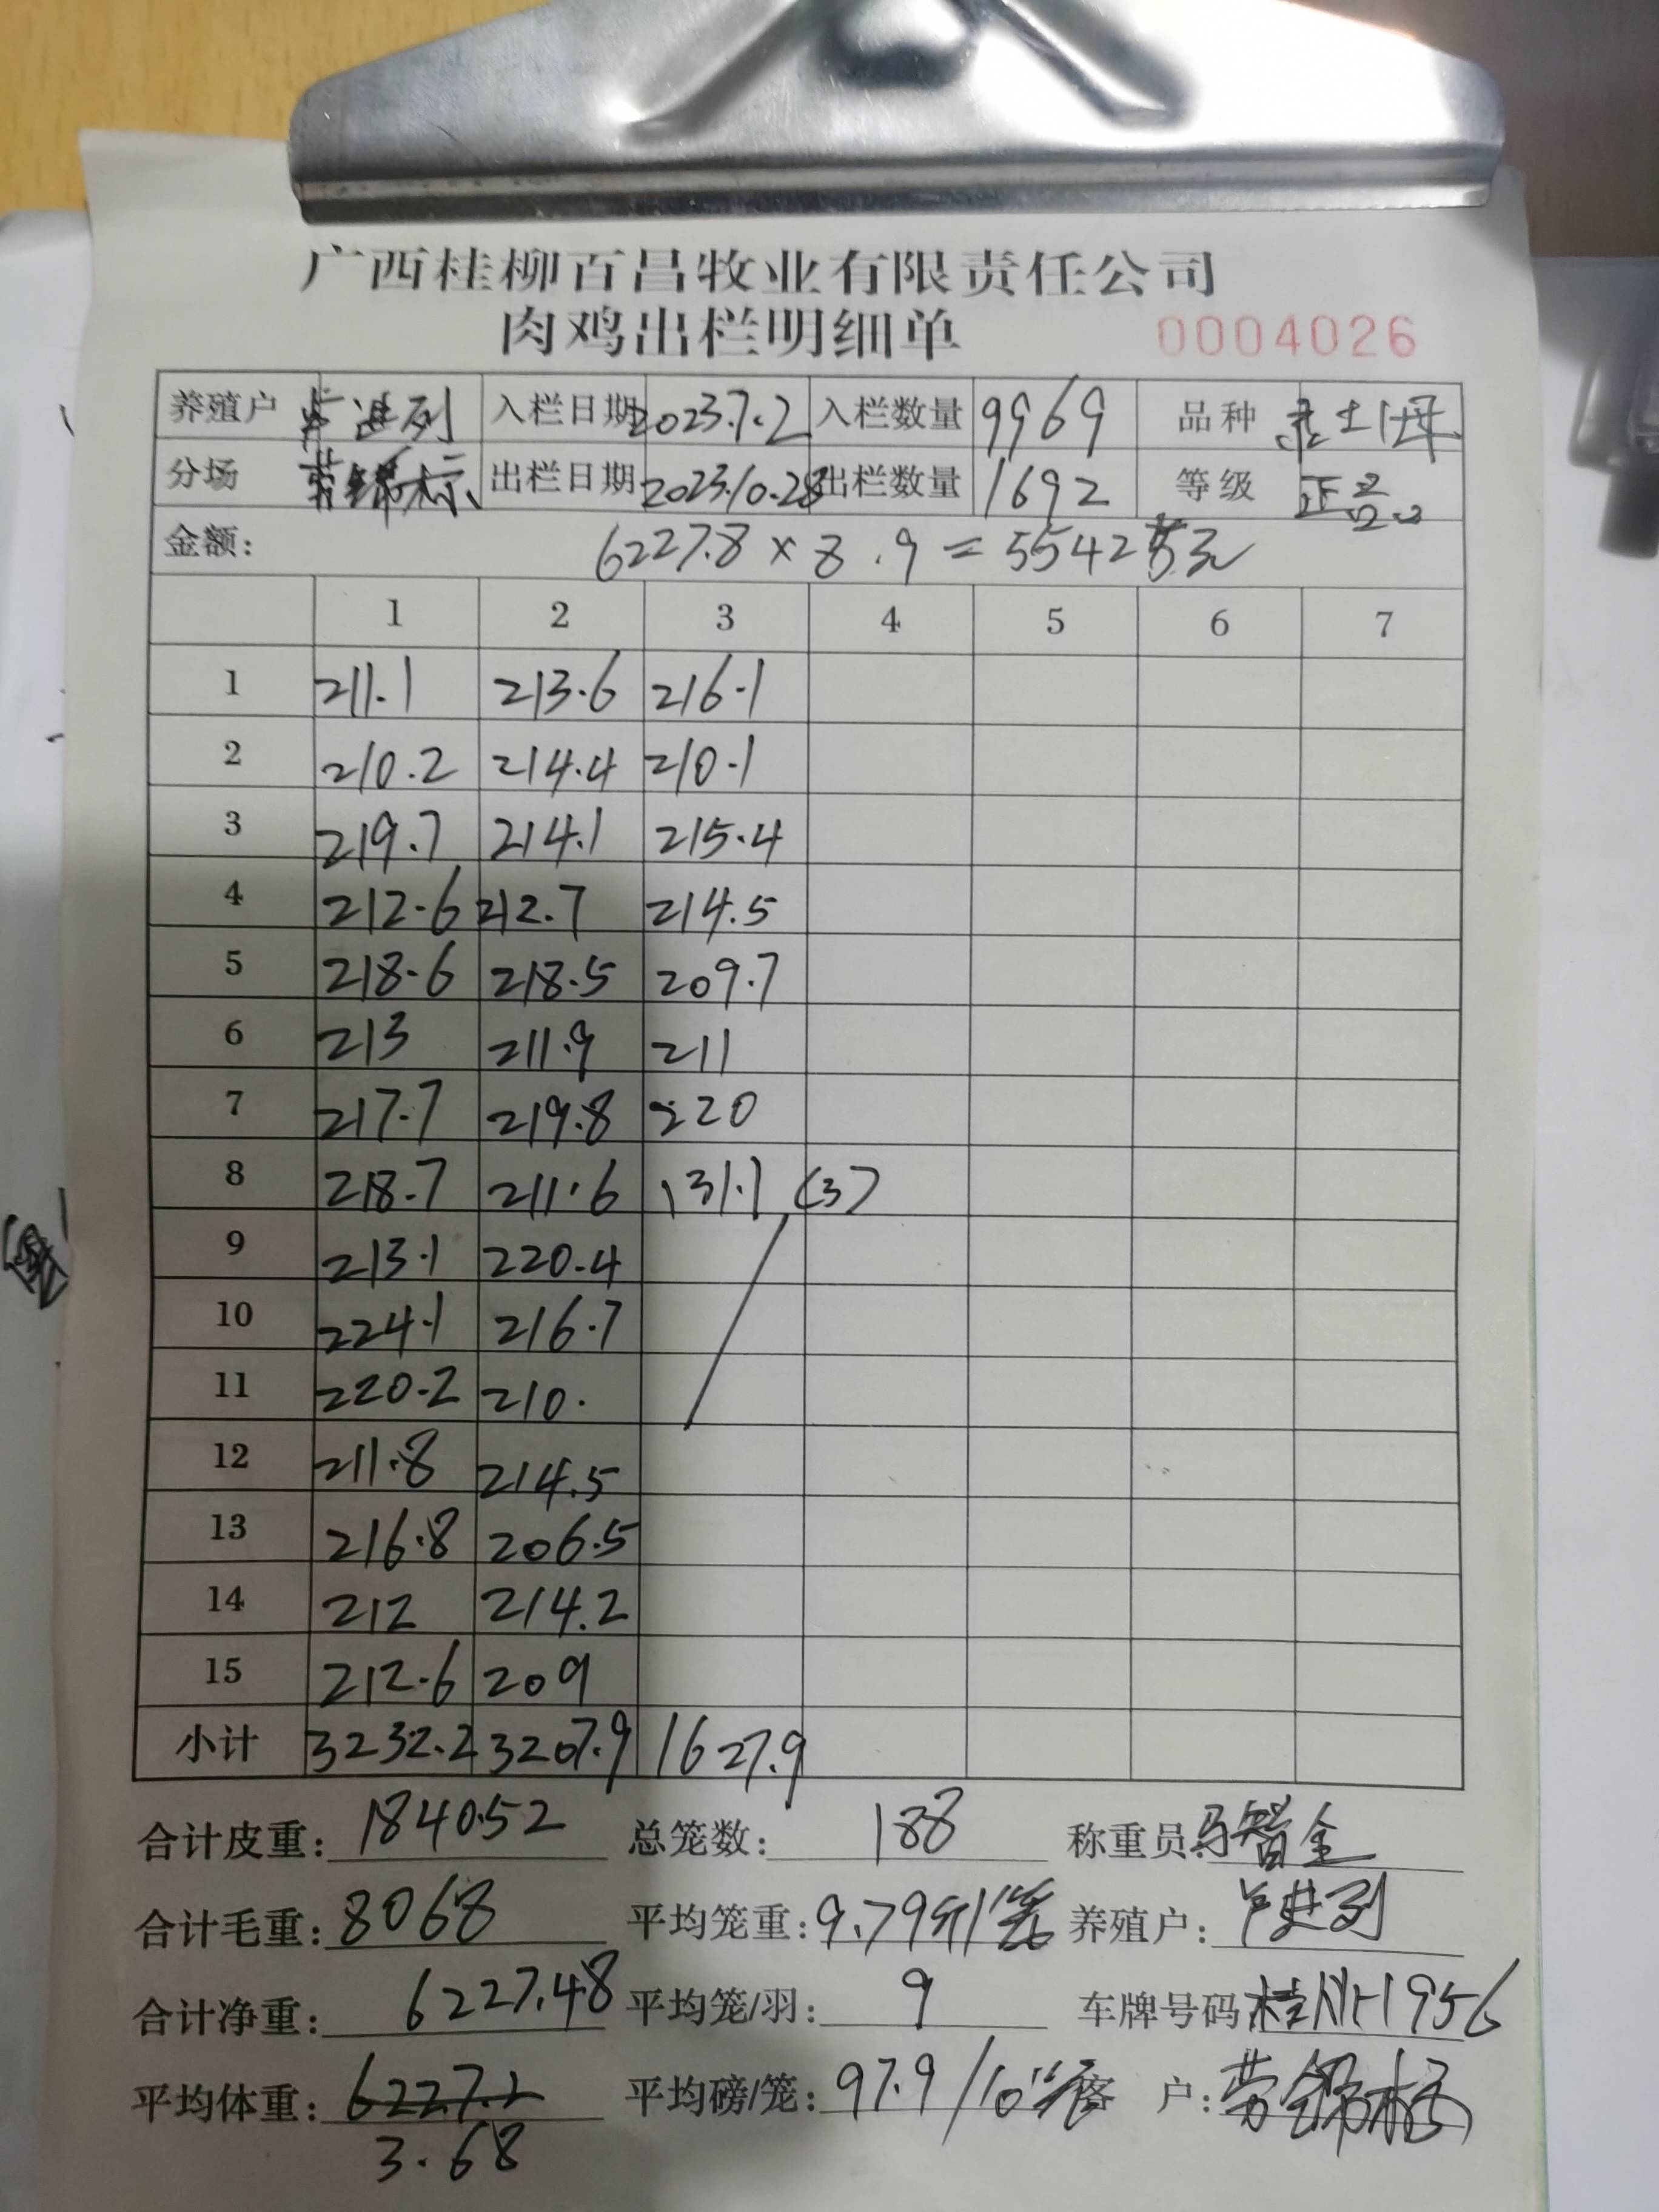 广西桂柳百昌牧业有限责任公司
肉鸡出栏明细单 0004026
养殖户 进列 入栏日期 2023.7.2 入栏数量 9969 品种 土
分场 劳锦标 出栏日期 2023.10.28 出栏数量 1692 等级 正品
金额: 6227.8 × 8.9 = 55427元
1 2 3 4 5 6 7
1 211.1 213.6 216.1
2 210.2 214.4 210.1
3 219.7 214.1 215.4
4 212.6 212.7 214.5
5 218.6 218.5 209.7
6 213 211.9 211
7 217.7 219.8 220
8 218.7 211.6 131.1 (3)
9 213.1 220.4
10 224.1 216.7
11 220.2 210.
12 211.8 214.5
13 216.8 206.5
14 212 214.2
15 212.6 209
小计 3232.2 3207.9 1627.9
合计皮重: 1840.52 总笼数: 188 称重员: 马智全
合计毛重: 8068 平均笼重: 9.79斤/笼 养殖户: 卢进列
合计净重: 6227.48 平均笼/羽: 9 车牌号码 桂 H1956
平均体重: 6227.2 平均磅/笼: 97.9/10笼 客户: 劳锦标
3.68